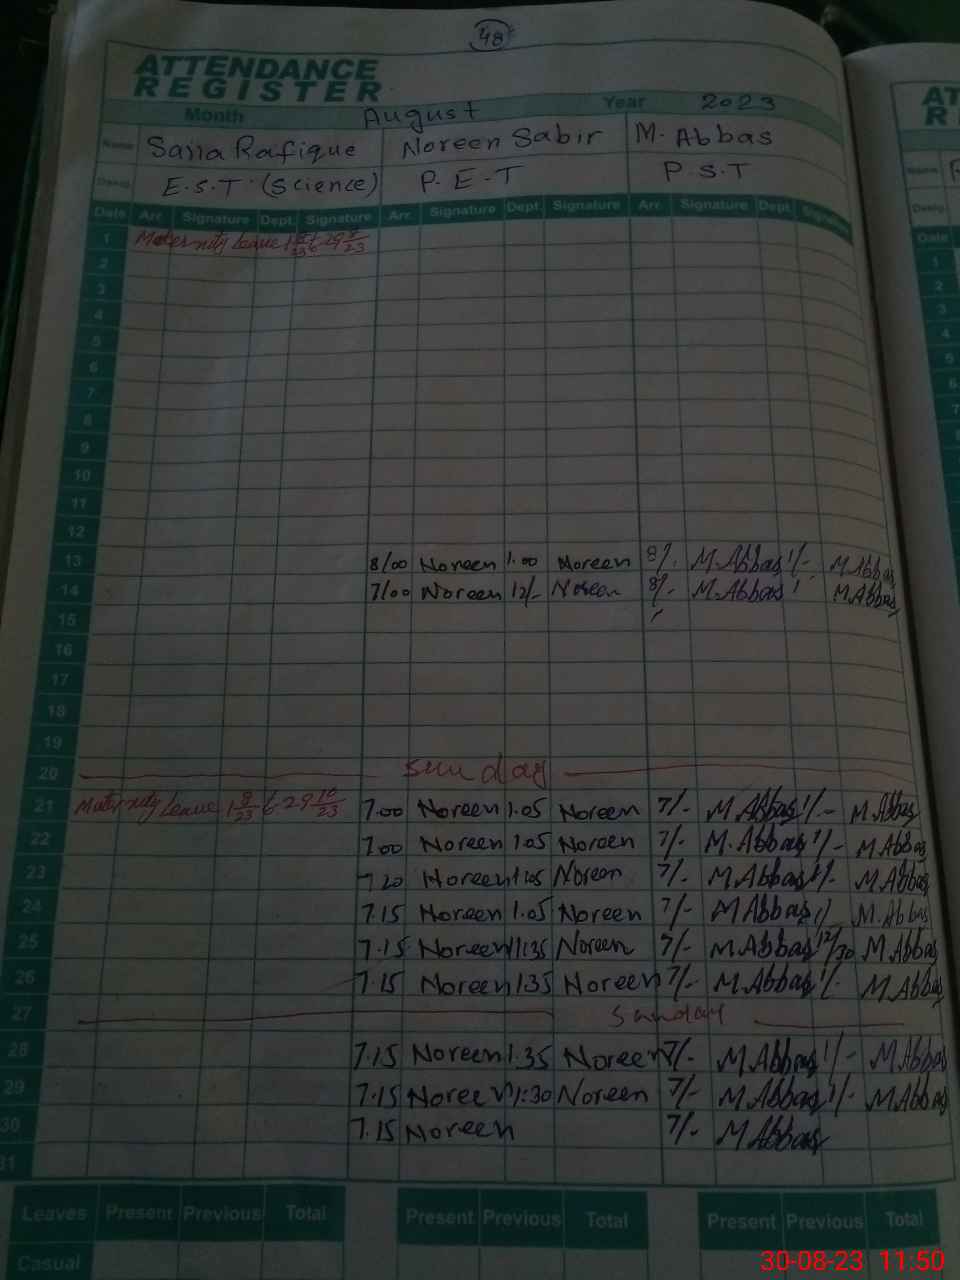 48
ATTENDANCE
REGISTER
Month August Year 2023
Name Sana Rafique Noreen Sabir M. Abbas
Desig. E.S.T (Science) P.E.T P.S.T
Date Arr. Signature Dept. Signature Arr. Signature Dept. Signature Arr. Signature Dept. Signature
1 Maternity Leave
2
3
4
5
6
7
8
9
10
11
12
13 8/00 Noreen 1.00 Noreen 8/. M.Abbas 1/- M Abbas
14 7/00 Noreen 12/- Noreen 8/- M.Abbas 1 M Abbas
15
16
17
18
19
20 Sunday
21 Maternity Leave 1 8/23 to 29 10/23 7.00 Noreen 1.05 Noreen 7/- M Abbas 1/- M.Abbas
22 7.00 Noreen 1.05 Noreen 7/- M.Abbas 1/- M Abbas
23 7.20 Noreen 1.05 Noreen 7/- M Abbas 1/- M Abbas
24 7.15 Noreen 1.05 Noreen 7/- M Abbas 1/ M.Abbas
25 7.15 Noreen 11:35 Noreen 7/- M Abbas 12/30 M Abbas
26 7.15 Noreen 1.35 Noreen 7/- M Abbas 1/- M Abbas
27 Sunday
28 7.15 Noreen 1.35 Noreen 7/- M Abbas 1/- M Abbas
29 7.15 Noreen 1:30 Noreen 7/- M Abbas 1/- M Abbas
30 7.15 Noreen 7/- M Abbas
31
Leaves Present Previous Total Present Previous Total Present Previous Total
Casual
30-08-23 11:50
AT
R
Name
Desig.
Date
1
2
3
4
5
6
7